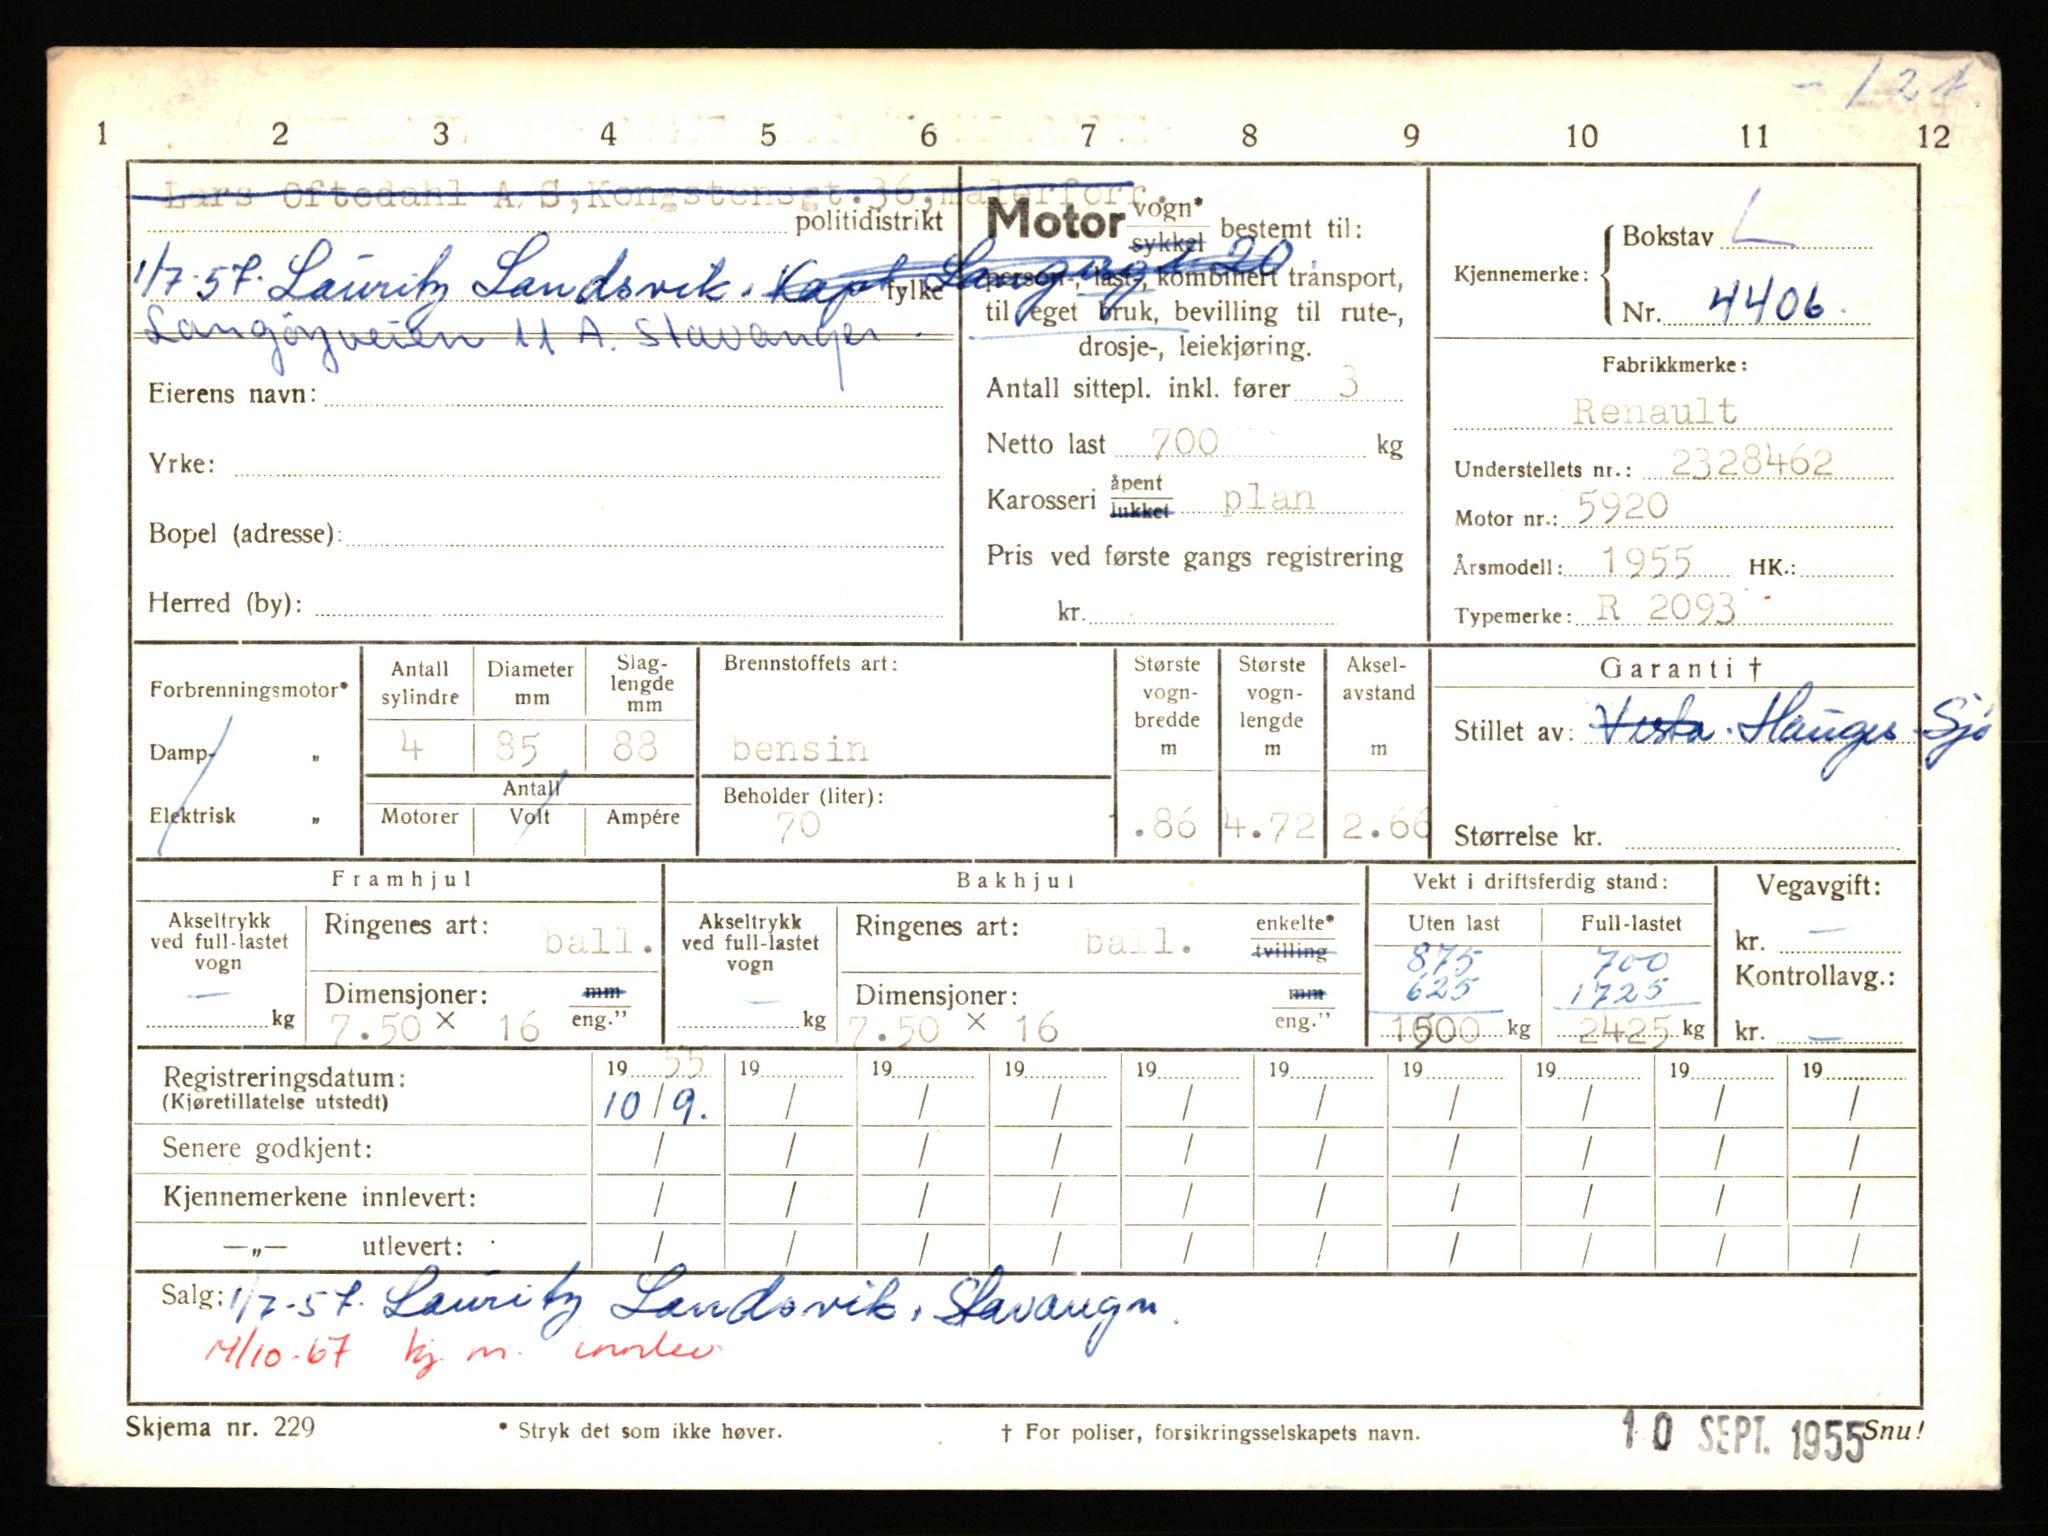 - 121.
1 2 3 4 5 6 7 8 9 10 11 12
Lars Oftedahl A/S, Kongstensgt. 36, malerforr.
politidistrikt
1/7-57. Lauritz Landsvik. Kapt Langesgt 20.
fylke
Langøyveien 11 A. Stavanger.
Eierens navn:
Yrke:
Bopel (adresse):
Herred (by):
Motor vogn* sykkel bestemt til:
person-, last-, kombinert transport,
til eget bruk, bevilling til rute-,
drosje-, leiekjøring.
Antall sittepl. inkl. fører 3
Netto last 700 kg
Karosseri åpent lukket plan
Pris ved første gangs registrering
kr.
Kjennemerke: Bokstav L
Nr. 4406.
Fabrikkmerke:
Renault
Understellets nr.: 2328462
Motor nr.: 5920
Årsmodell: 1955 HK.:
Typemerke: R 2093
Forbrenningsmotor*
Damp- "
Elektrisk "
Antall sylindre Diameter mm Slag-lengde mm
4 85 88
Antall
Motorer Volt Ampére
Brennstoffets art:
bensin
Beholder (liter):
70
Største vogn-bredde m
.86
Største vogn-lengde m
4.72
Aksel-avstand m
2.66
Garanti †
Stillet av: Vesta. Hauges Sjø
Størrelse kr.
Framhjul
Akseltrykk ved full-lastet vogn
— kg
Ringenes art: ball.
Dimensjoner: mm eng."
7.50 x 16
Bakhjul
Akseltrykk ved full-lastet vogn
— kg
Ringenes art: ball. enkelte* tvilling
Dimensjoner: mm eng."
7.50 x 16
Vekt i driftsferdig stand:
Uten last Full-lastet
875 700
625 1725
1500 kg 2425 kg
Vegavgift:
kr. —
Kontrollavg.:
kr. —
Registreringsdatum: 19 55 19 19 19 19 19 19 19 19 19
(Kjøretillatelse utstedt) 10/9. / / / / / / / / /
Senere godkjent: / / / / / / / / / /
Kjennemerkene innlevert: / / / / / / / / / /
—„— utlevert: / / / / / / / / / /
Salg: 1/7-57. Lauritz Landsvik, Stavanger.
/10-67 kj. m. innlev
Skjema nr. 229 * Stryk det som ikke høver. † For poliser, forsikringsselskapets navn. 10 SEPT. 1955 Snu!